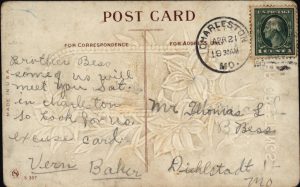 POST CARD
FOR CORRESPONDENCE
FOR ADDRESS ONLY
CHARLESTON
APR 21
MO.
MADE IN U.S.A.
Brother Bess
some of us will
meet you Sat.
in Charleston
So look for us
excuse card
Vern Baker
Mr Thomas L
Bess
Diehlstadt
Mo
S 397